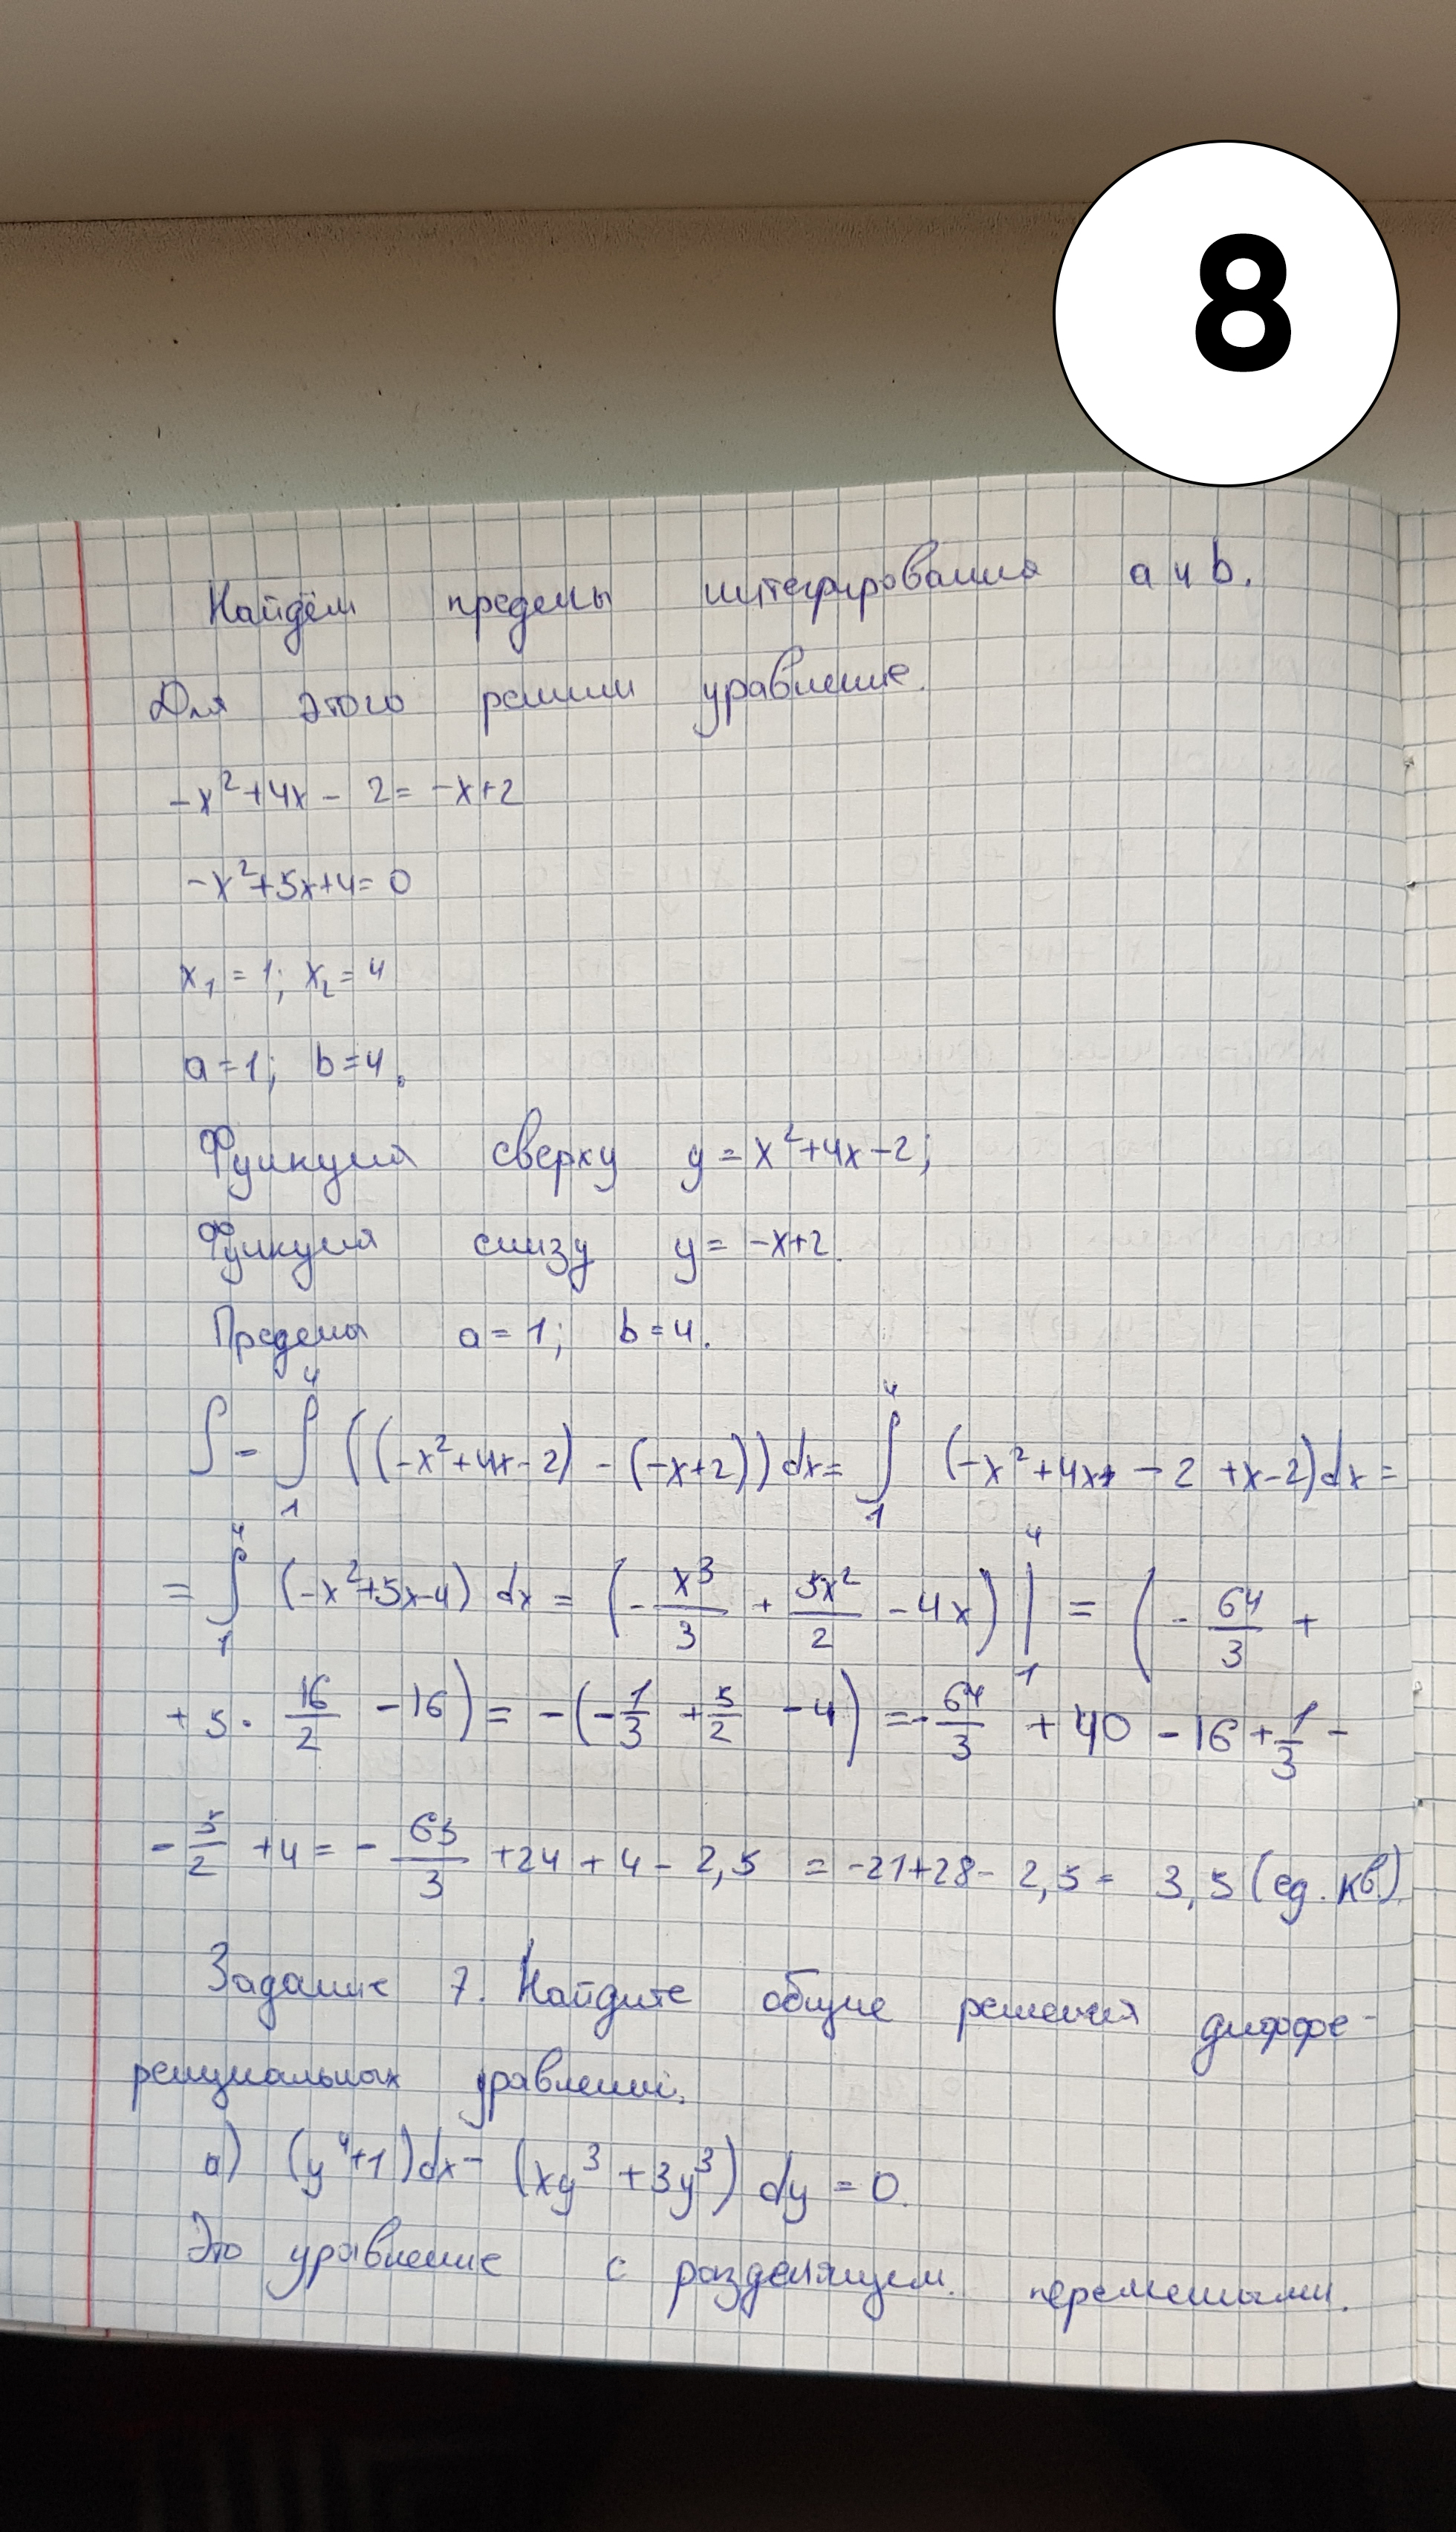 8
Найдём пределы интегрирования a и b.
Для этого решим уравнение.
-x²+4x-2=-x+2
-x²+5x+4=0
x₁=1; x₂=4
a=1; b=4.
Функция сверху y=x²+4x-2;
Функция снизу y=-x+2.
Пределы a=1; b=4.
S=∫₁⁴((-x²+4x-2)-(-x+2))dx=∫₁⁴(-x²+4x+-2+x-2)dx=
=∫₁⁴(-x²+5x-4)dx=(-x³/3+5x²/2-4x)|₁⁴=(-64/3+
+5·16/2-16)=-(-1/3+5/2-4)=-64/3+40-16+1/3-
-5/2+4=-63/3+24+4-2,5=-21+28-2,5=3,5(ед.кв.)
Задание 7. Найдите общие решения диффе-
ренциальных уравнений.
а) (y⁴+1)dx-(xy³+3y³)dy=0.
Это уравнение с разделяющем. переменными.